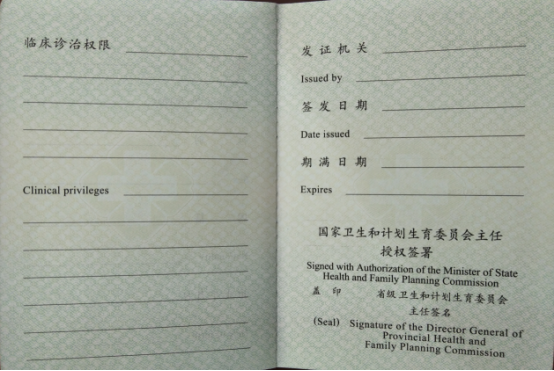 临床诊治权限
Clinical privileges
发证机关
Issued by
签发日期
Date issued
期满日期
Expires
国家卫生和计划生育委员会主任
授权签署
Signed with Authorization of the Minister of State
Health and Family Planning Commission
盖 印 省级卫生和计划生育委员会
主任签名
(Seal) Signature of the Director General of
Provincial Health and
Family Planning Commission